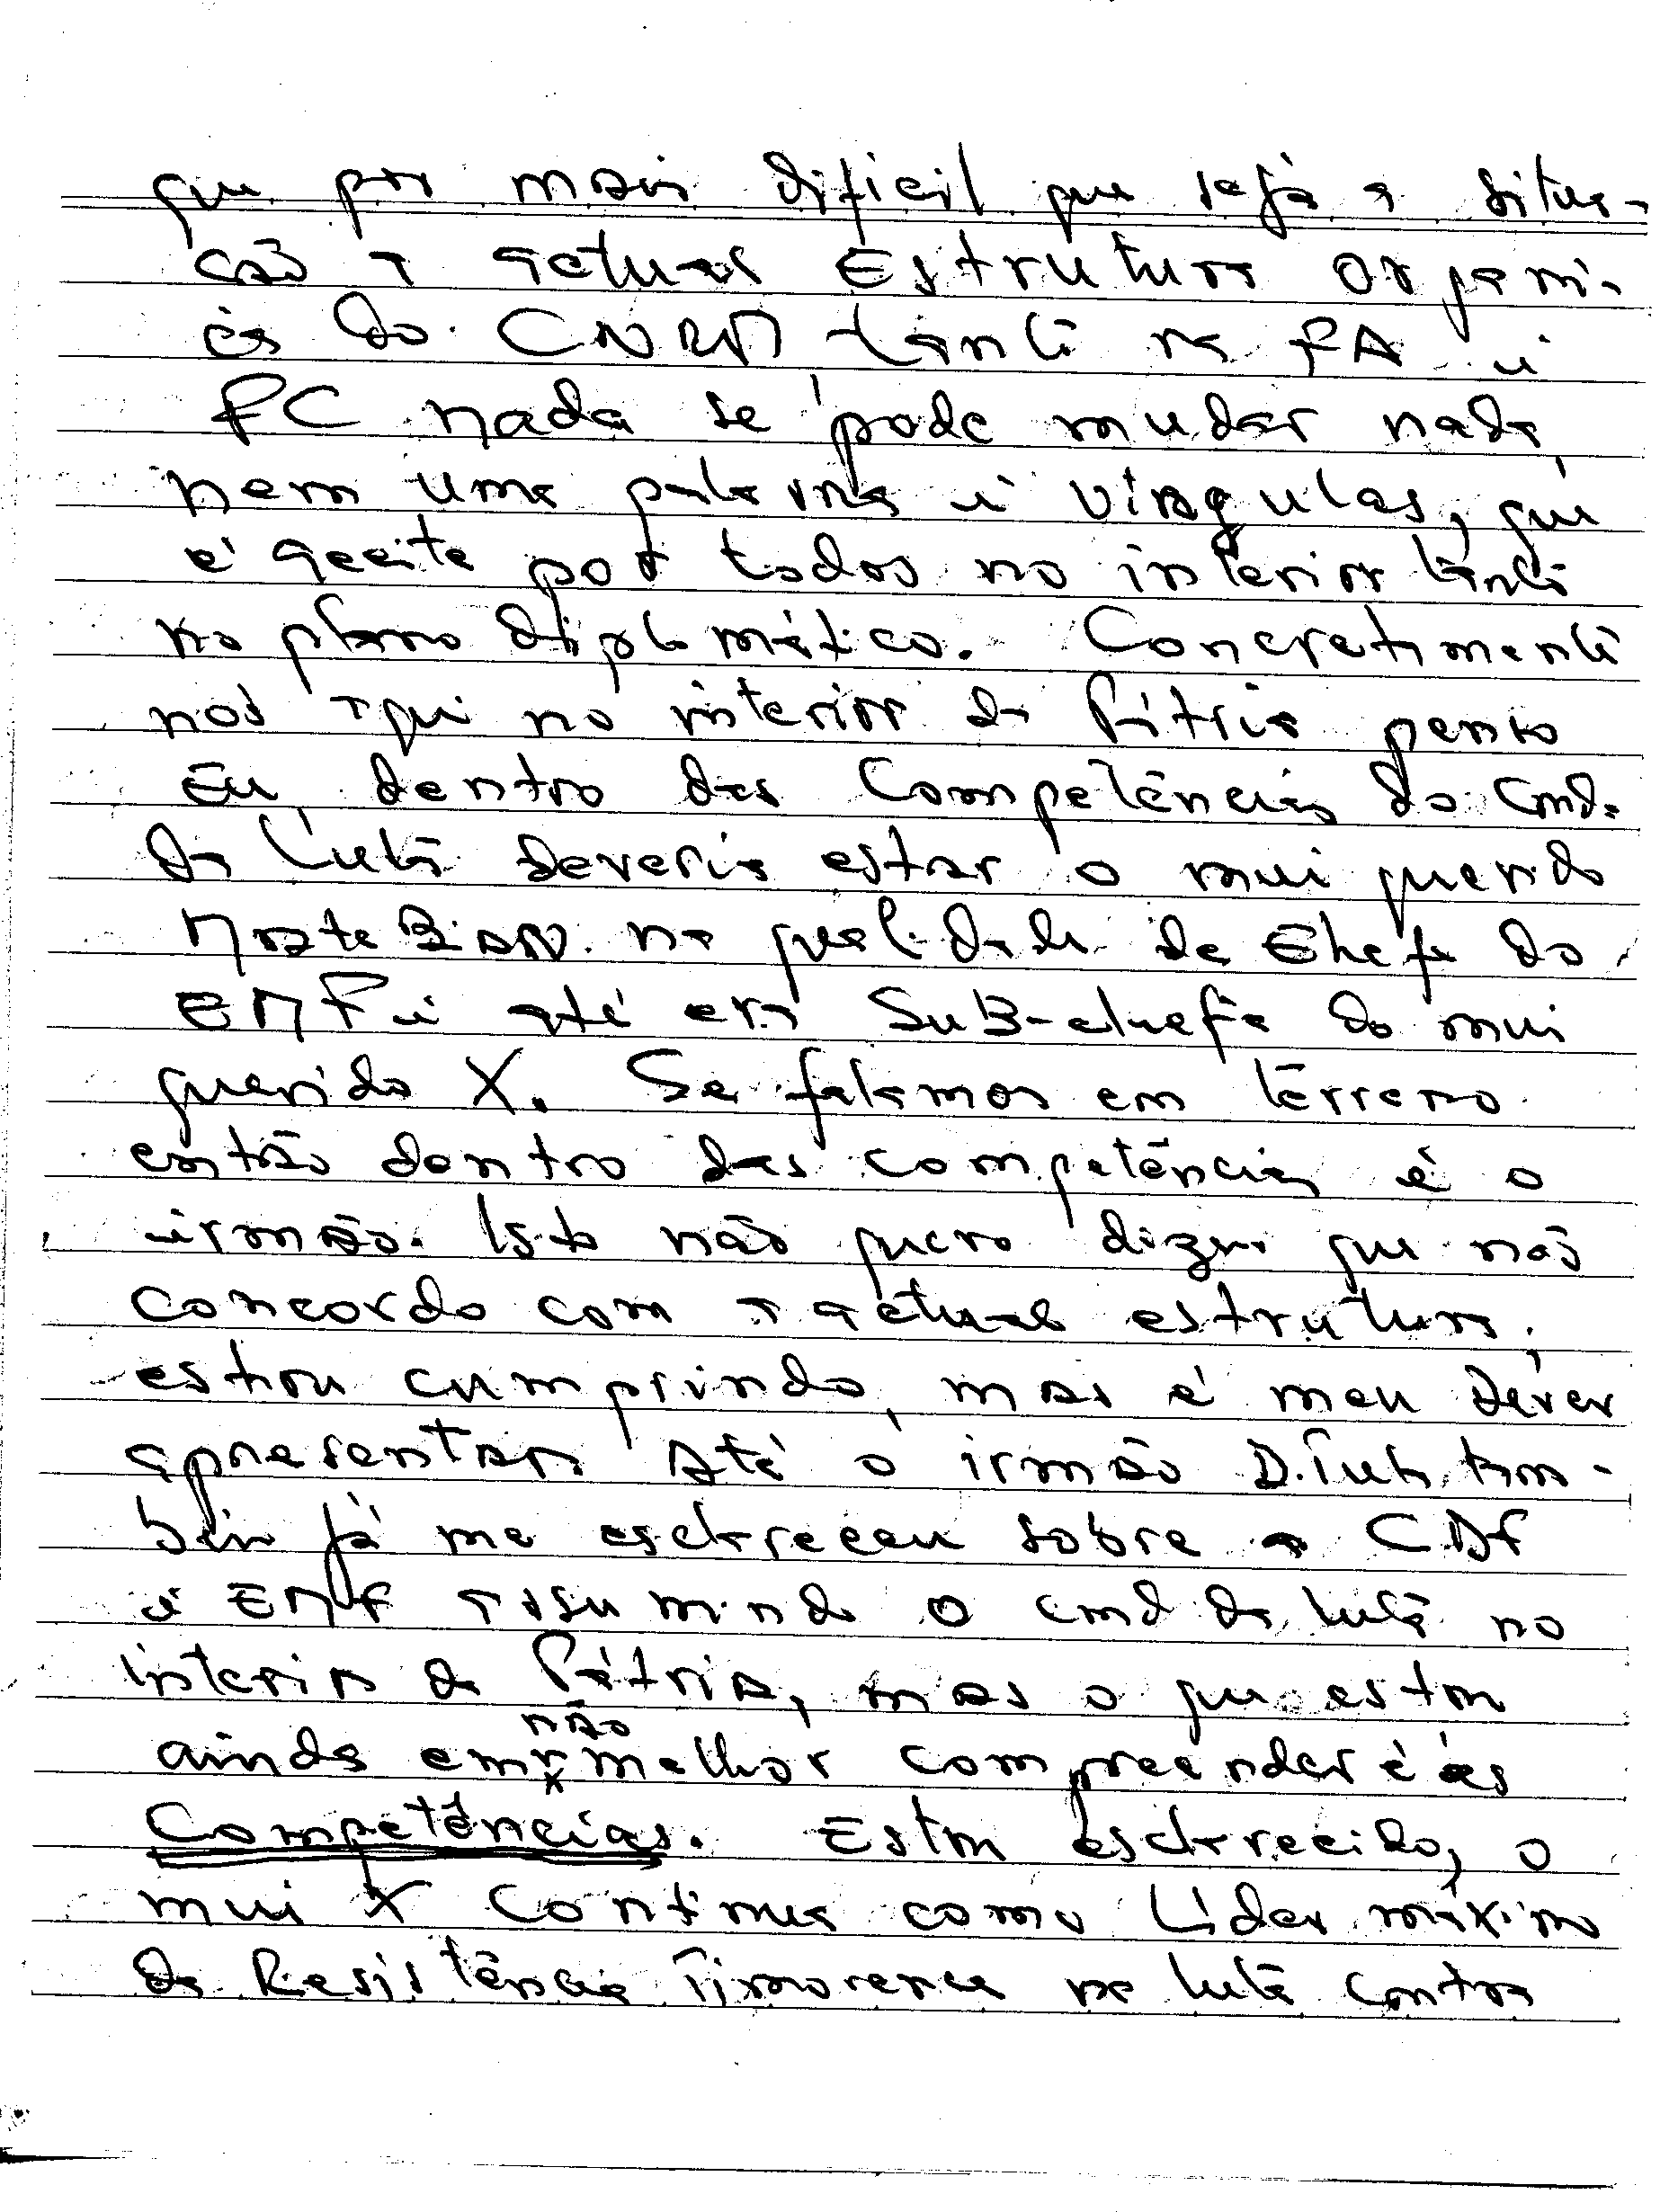 que por mais difícil que seja a situa-
ção a actual Estrutura orgâni-
ca do CNRM tanto na FA e
FC nada se pode mudar nada,
nem uma palavra e vírgulas, que
é aceite por todos no interior tanto
no plano diplomático. Concretamente
nós aqui no interior da Pátria penso
Eu, dentro das Competências do Cmd.
da Luta deveria estar o mui querido
na qualidade de Chefe do
EMF e até era Sub-chefe do mui
querido X. Se falamos em térreno
então dentro das competências é o
irmão. Isto não quero dizer que não
concordo com a actual estrutura,
estou cumprindo, mas é meu dever
apresentar. Até o irmão D. Tuta tam-
bém já me esclareceu sobre a CDF
e EMF assumindo o cmd da luta no
interior da Pátria, mas o que estou
não
ainda em x melhor compreender é as
Competências. Estou esclarecido, o
mui X Continua como Líder máximo
da Resistência Timorense na luta contra